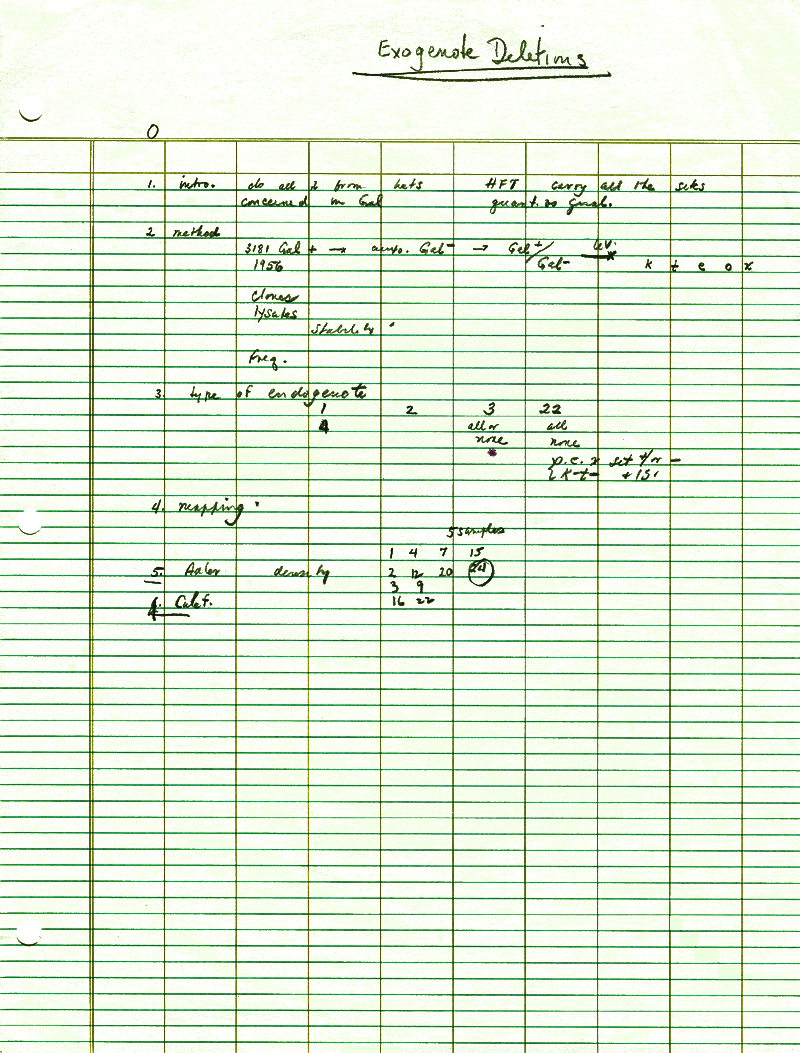 Exogenote Deletions
O
1. intro. do all λ from hets HFT carry all the sites
concerned in Gal quant. vs qual.
2 method
3181 Gal + → auxo. Gal- → Gal+/Gal-
1956 k t e o x
clones
lysates
stability
Freq.
3. type of endogenote
1 2 3 22
4 all or all
none none
p.e. λ set +/or -
k-t-
4. mapping
5 samples
1 4 7 15
5. Adler density 2 12 20
3 9
6. Calef. 16 22